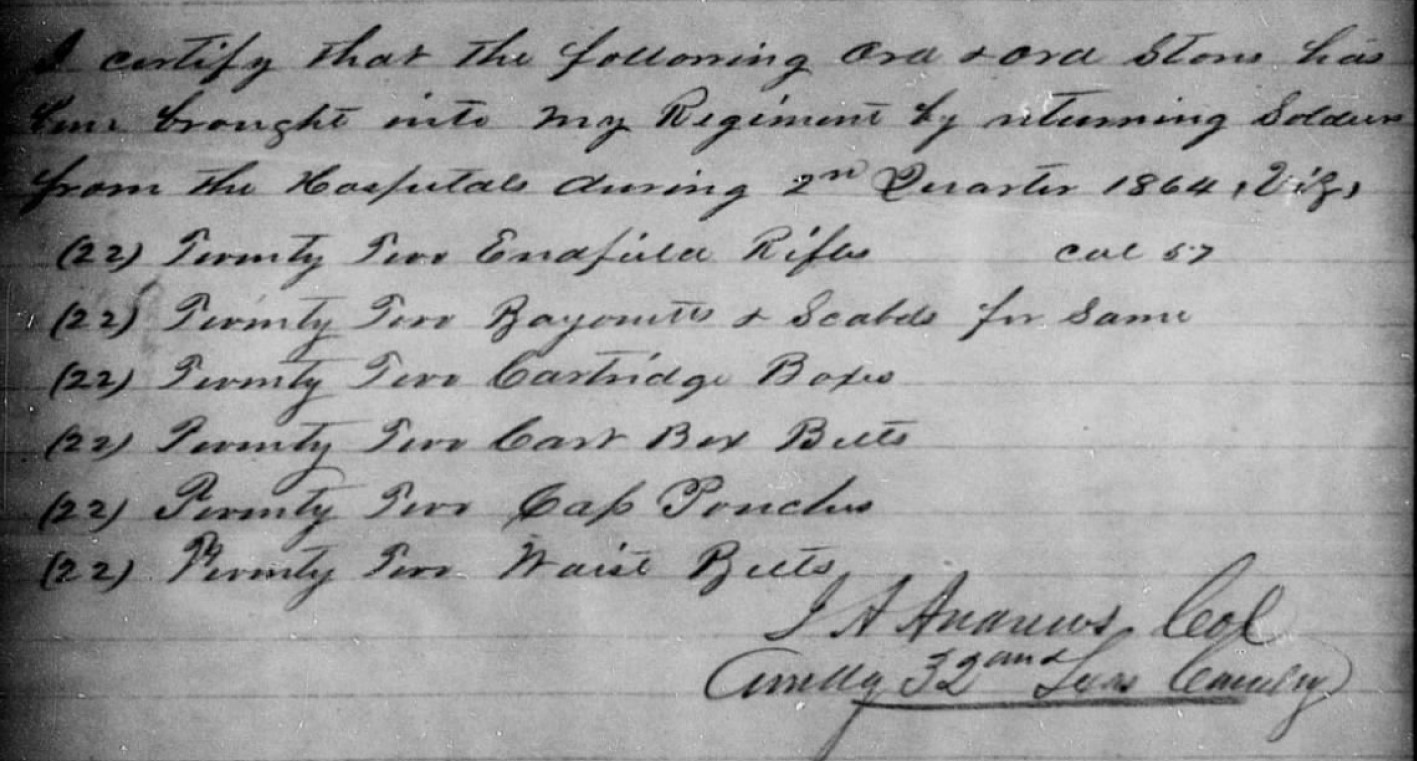 I certify that the following Ord & Ord Stors has
been brought into my Regiment by returning Soldiers
from the Hospitals during 2nd Quarter 1864, Viz,
(22) Twenty Two Endfield Rifles cal 57
(22) Twenty Two Bayonetts & Scabds for Same
(22) Twenty Two Cartridge Boxes
(22) Twenty Two Cart Box Belts
(22) Twenty Two Cap Pouches
(22) Twenty Two Waist Belts
J A Andrews, Col
Comdg 32nd Texas Cavalry